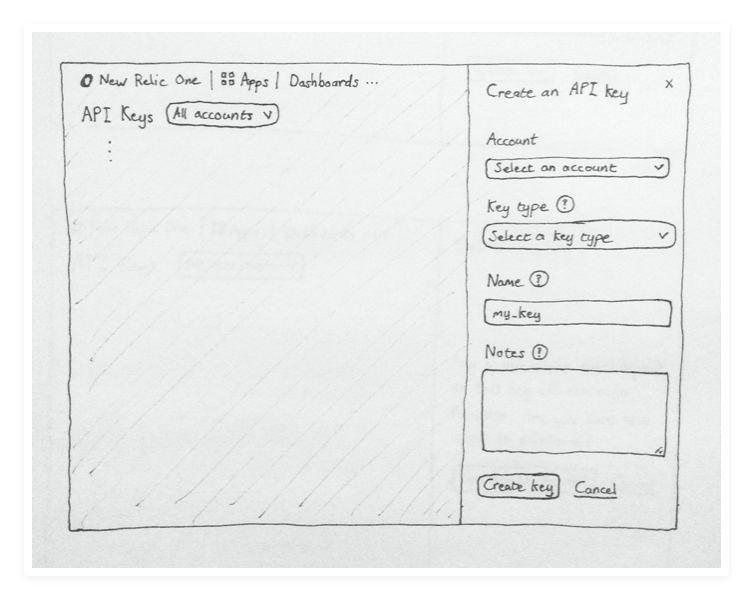 New Relic One | Apps | Dashboards ...
API Keys All accounts
Create an API key x
Account
Select an account
Key type ?
Select a key type
Name ?
my_key
Notes ?
Create key Cancel